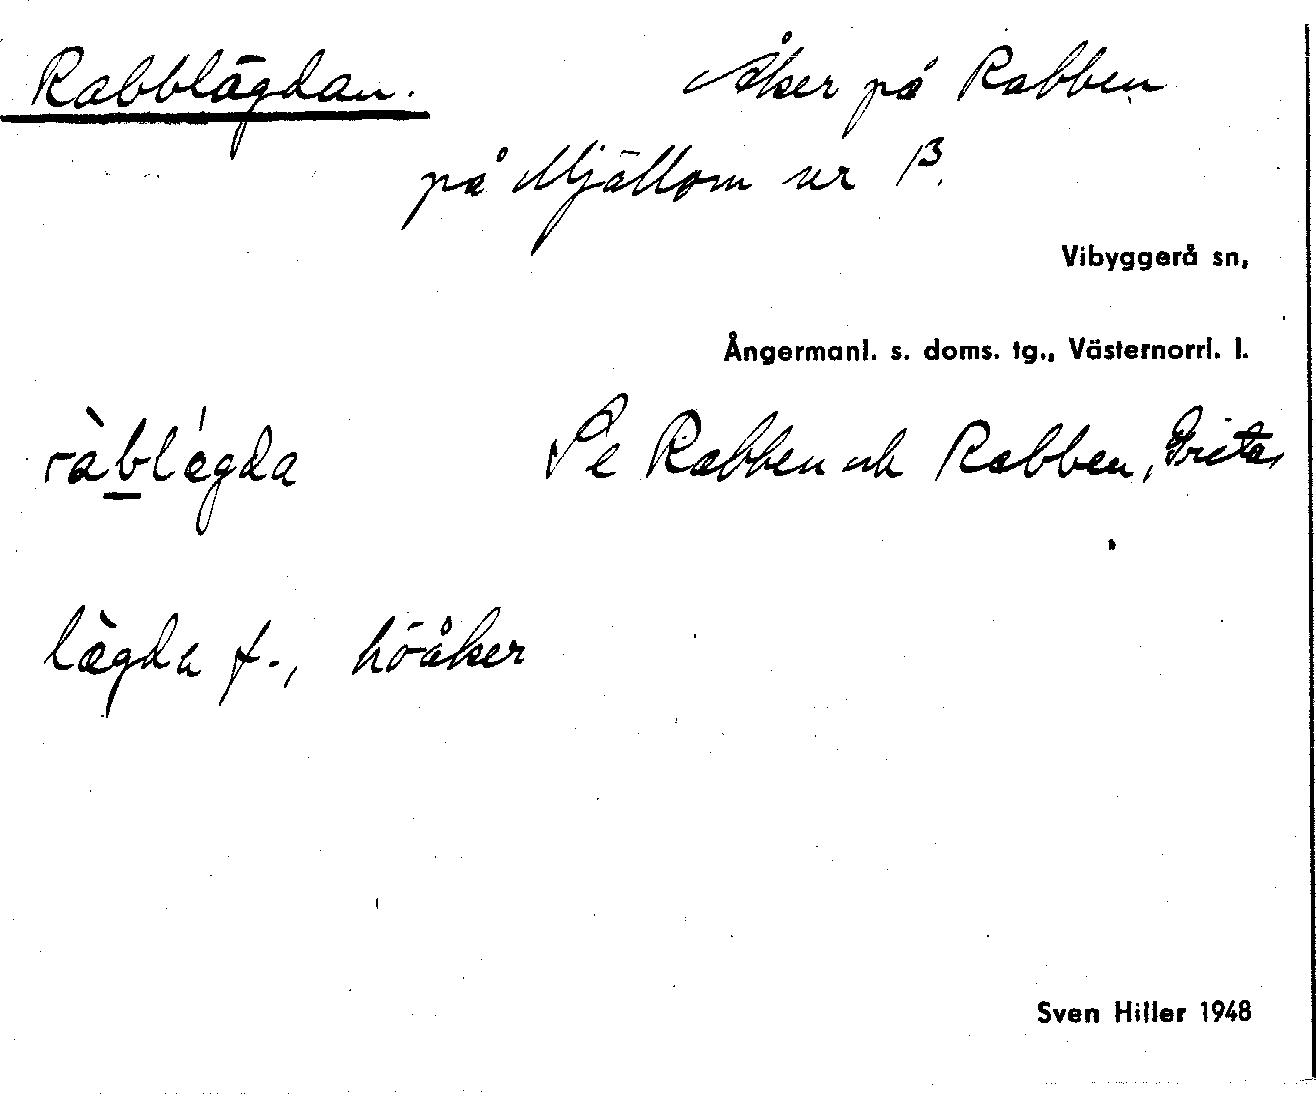 Rabblägdan. Åker på Rabben
på Mjällom nr 13.
Vibyggerå sn,
Ångermanl. s. doms. tg., Västernorrl. l.
ràblǽgda Se Rabben och Rabben,
lægda f., höåker
Sven Hiller 1948